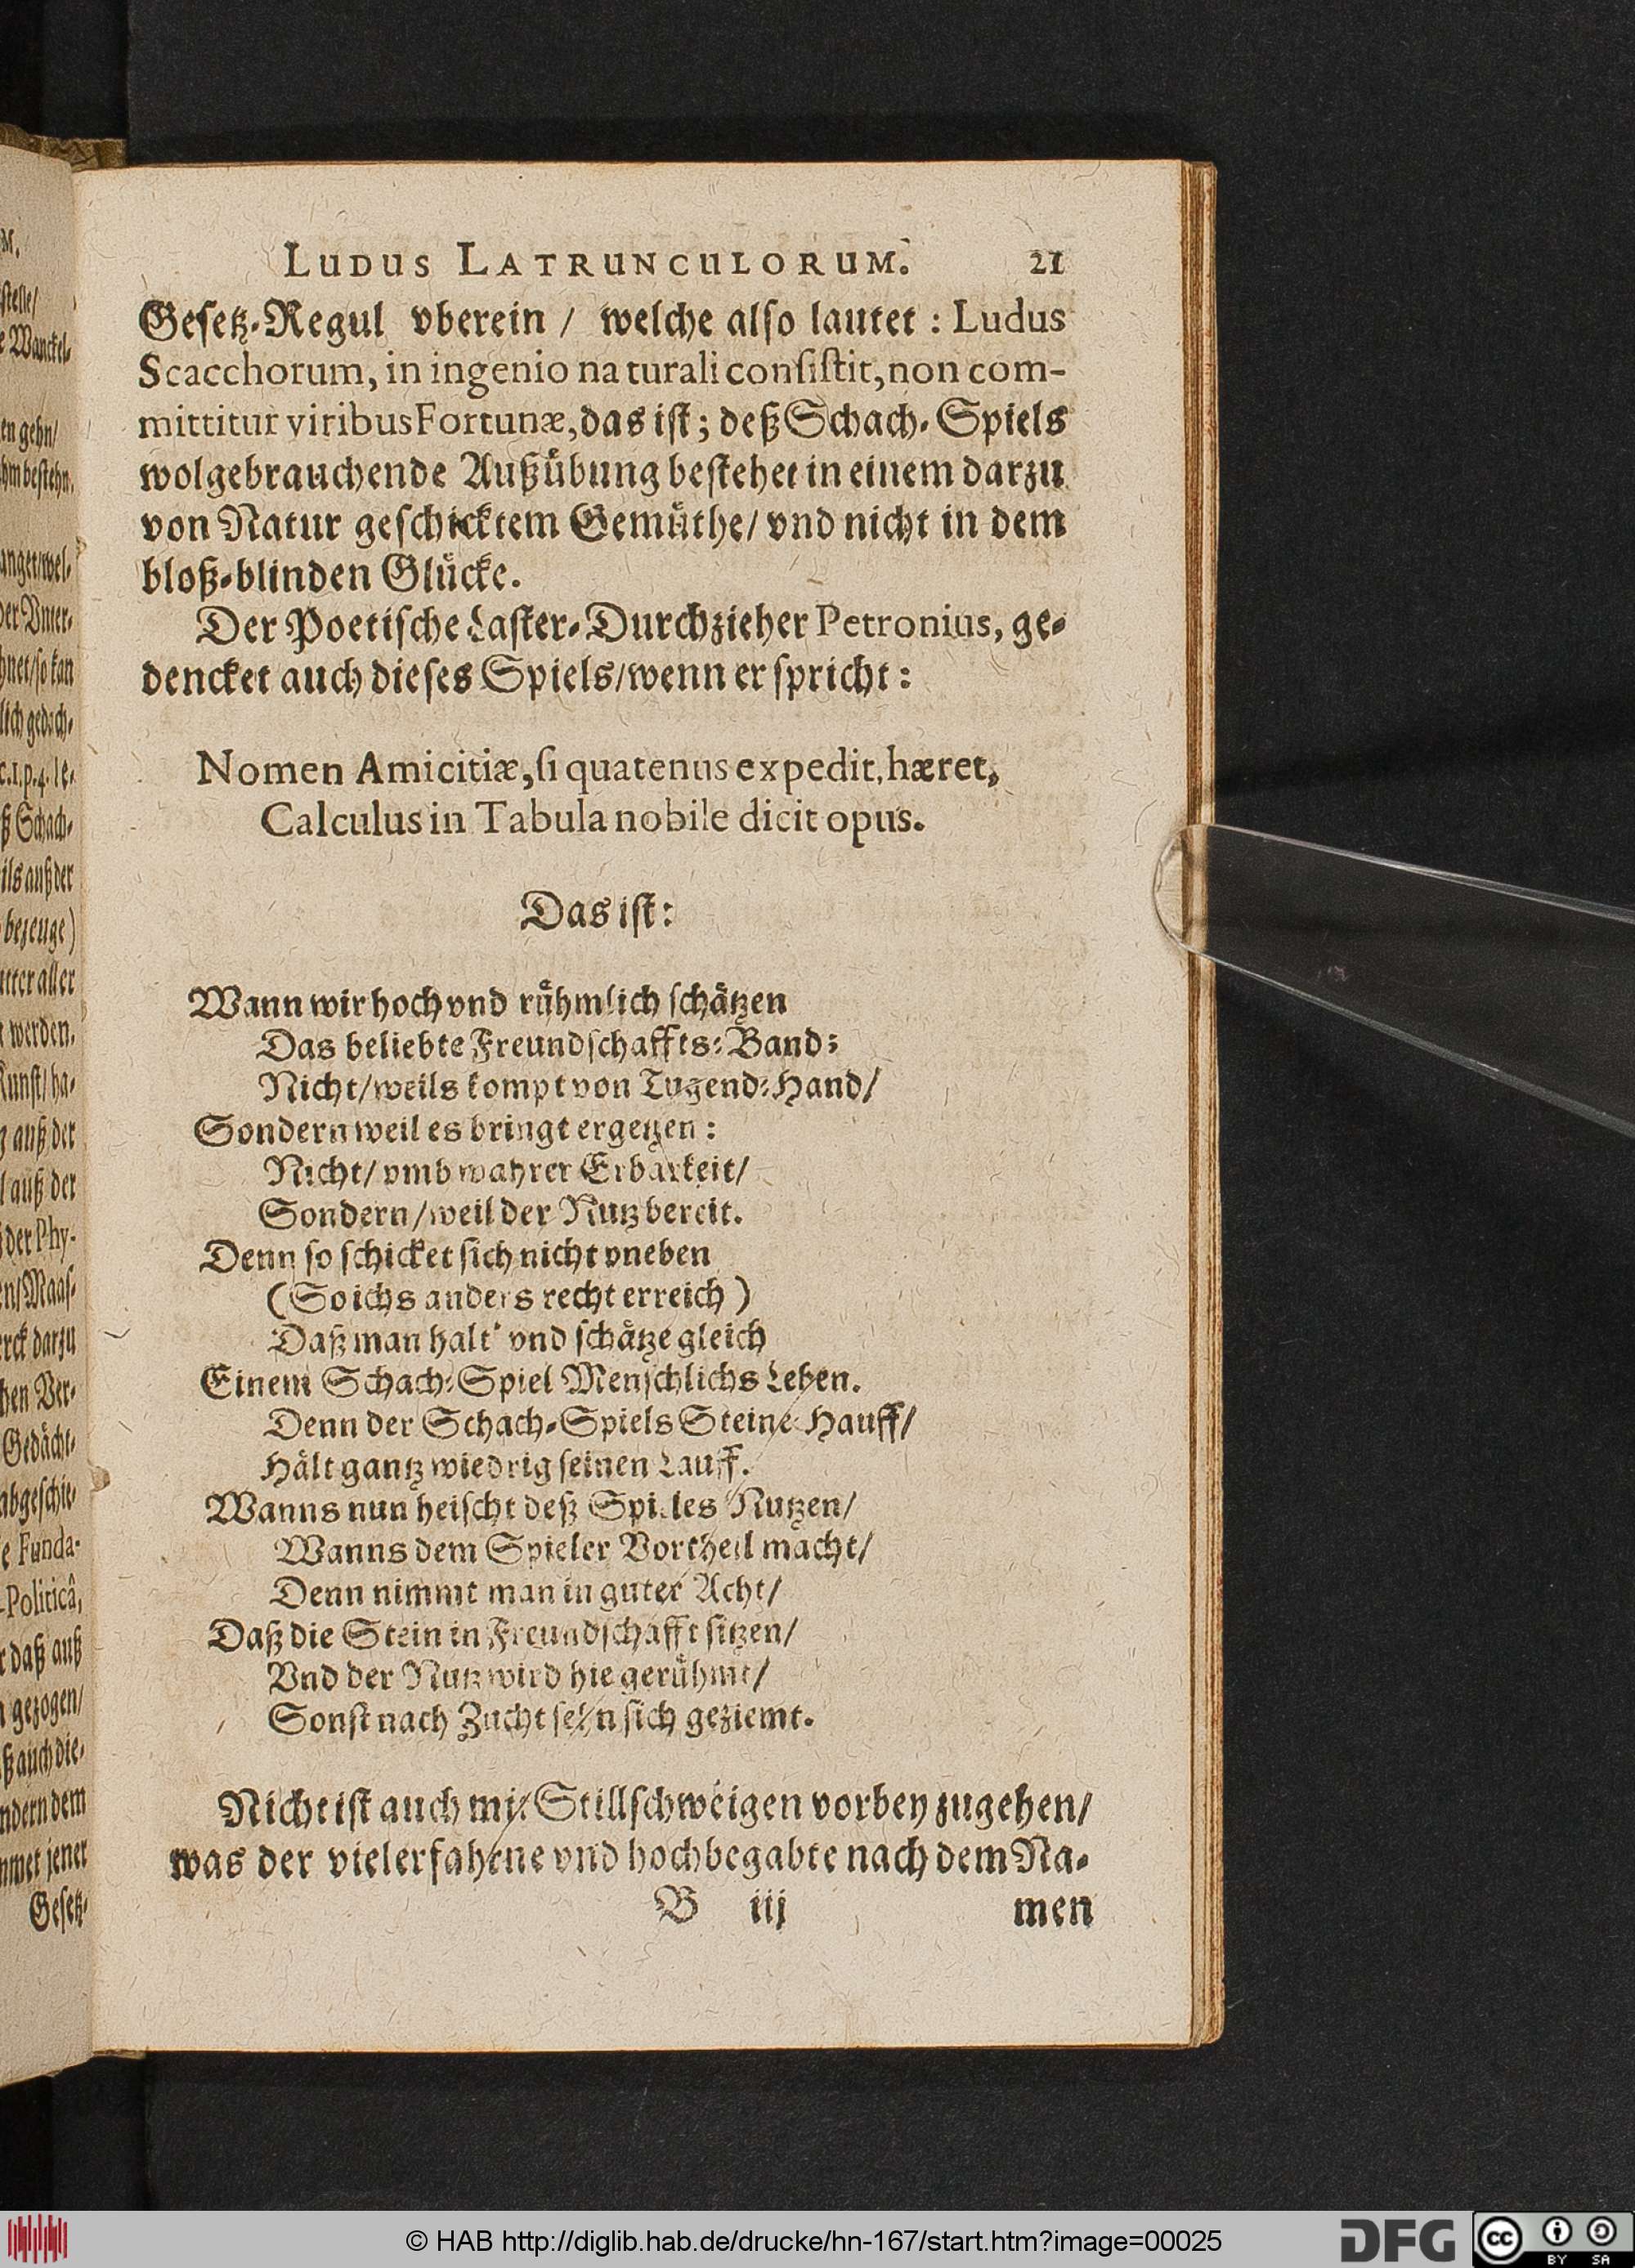 LUDUS LATRUNCULORUM. 21
Gesetz-Regul vberein / welche also lautet : Ludus
Scacchorum, in ingenio naturali consistit, non com-
mittitur viribus Fortunæ, das ist; deß Schach-Spiels
wolgebrauchende Außübung bestehet in einem darzu
von Natur geschicktem Gemüthe/ vnd nicht in dem
bloß-blinden Glücke.
Der Poetische Laster-Durchzieher Petronius, ge-
dencket auch dieses Spiels/wenn er spricht :
Nomen Amicitiæ, si quatenus expedit, hæret,
Calculus in Tabula nobile dicit opus.
Das ist:
Wann wir hoch vnd rühmlich schätzen
Das beliebte Freundschaffts-Band;
Nicht/weils kompt von Tugend-Hand/
Sondern weil es bringt ergetzen :
Nicht/ vmb wahrer Erbarkeit/
Sondern/weil der Nutz bereit.
Denn so schicket sich nicht vneben
(So ichs anders recht erreich )
Daß man halt' vnd schätze gleich
Einem Schach-Spiel Menschlichs Leben.
Denn der Schach-Spiels Steine Hauff/
Hält gantz wiedrig seinen Lauff.
Wanns nun heischt deß Spieles Nutzen/
Wanns dem Spieler Vortheil macht/
Denn nimmt man in guter Acht/
Daß die Stein in Freundschafft sitzen/
Vnd der Nutz wird hie gerühmt/
Sonst nach Zucht seyn sich geziemt.
Nicht ist auch mit Stillschweigen vorbey zugehen/
was der vielerfahrne vnd hochbegabte nach dem Na-
B iij men
© HAB http://diglib.hab.de/drucke/hn-167/start.htm?image=00025
DFG
cc BY SA